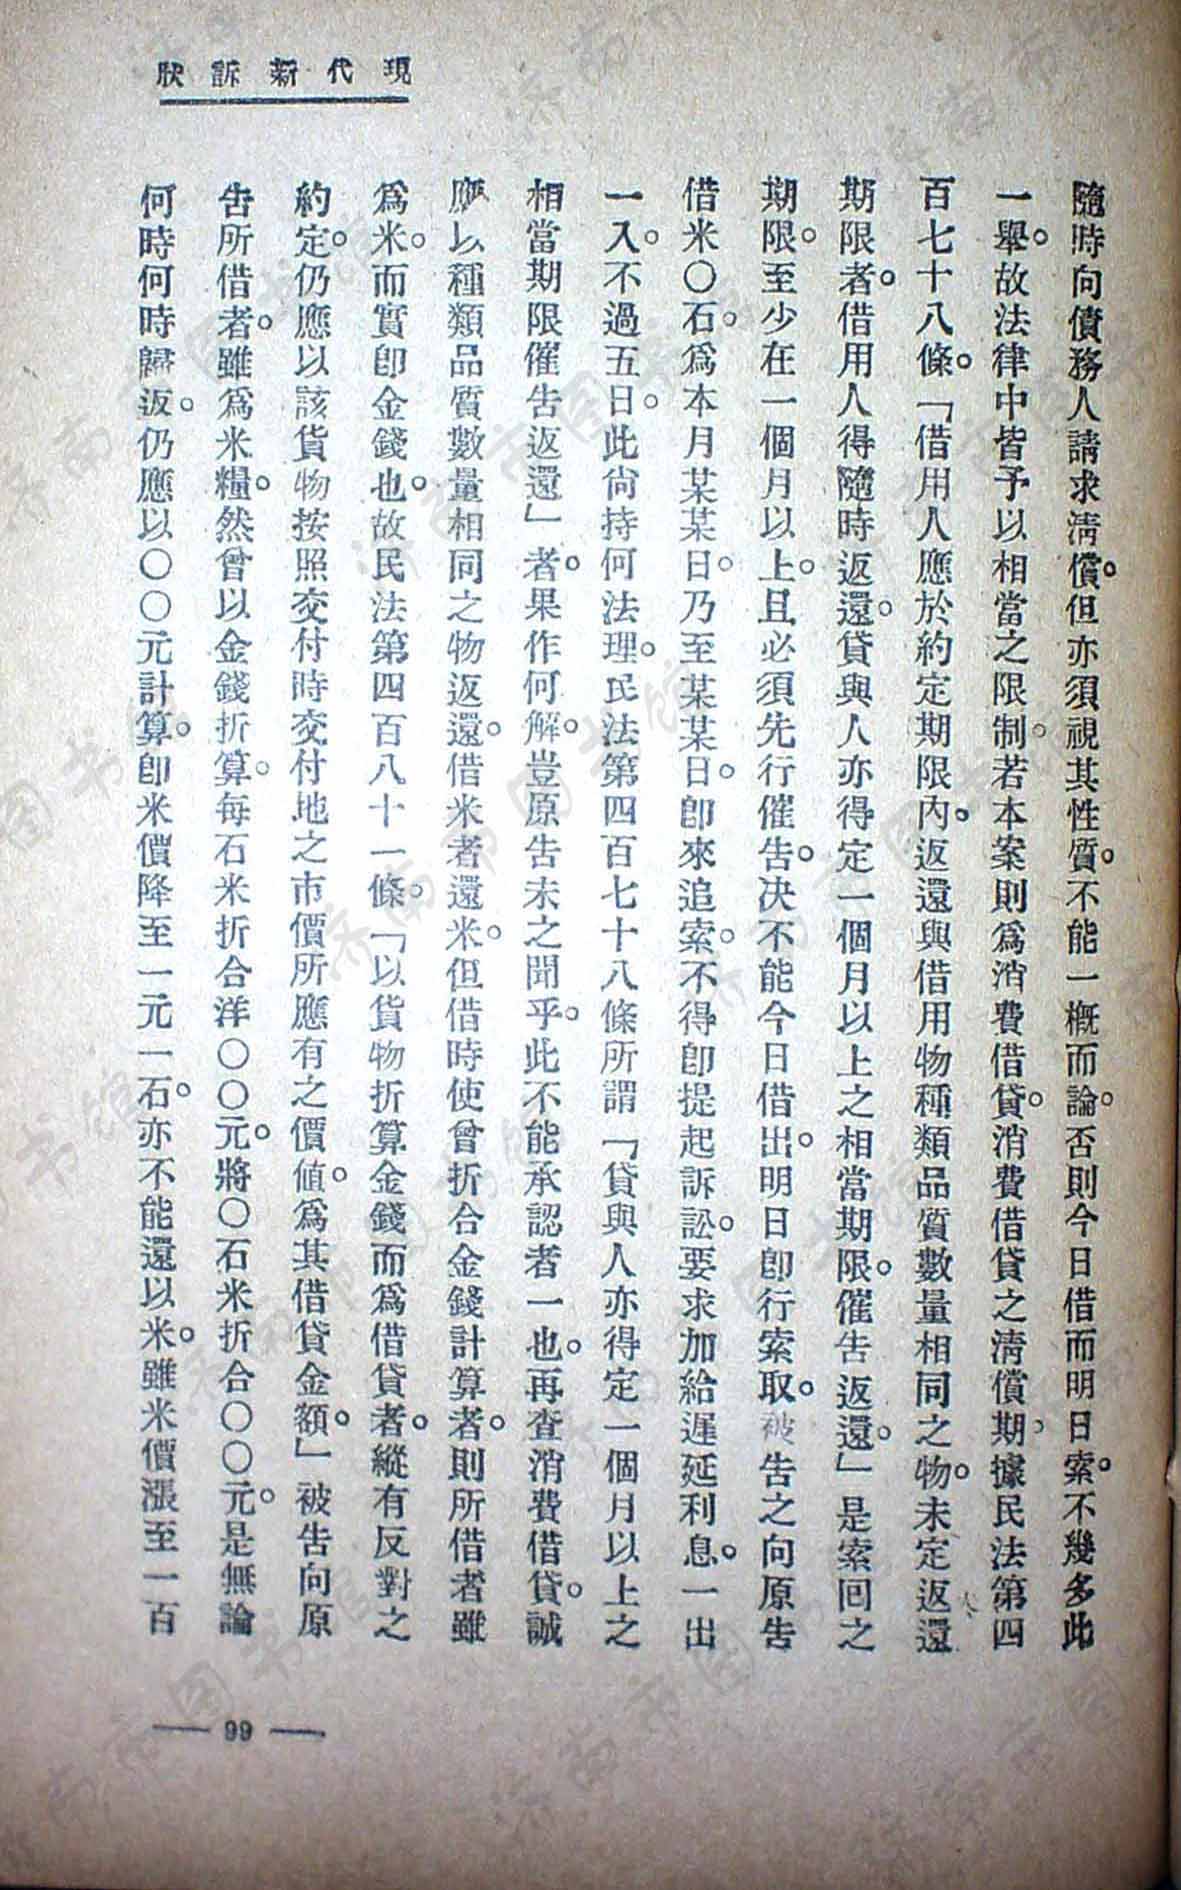 現代新訴狀
隨時向債務人請求淸償。但亦須視其性質。不能一概而論。否則今日借而明日索。不幾多此
一舉。故法律中皆予以相當之限制。若本案則爲消費借貸。消費借貸之淸償期。據民法第四
百七十八條。「借用人應於約定期限內。返還與借用物種類品質數量相同之物。未定返還
期限者。借用人得隨時返還。貸與人亦得定一個月以上之相當期限。催告返還。」是索回之
期限。至少在一個月以上。且必須先行催告。決不能今日借出。明日卽行索取。被告之向原告
借米〇石。爲本月某某日。乃至某某日。卽來追索。不得卽提起訴訟。要求加給遲延利息。一出
一入。不過五日。此尙持何法理。民法第四百七十八條所謂「貸與人亦得定一個月以上之
相當期限催告返還」者。果作何解。豈原告未之聞乎。此不能承認者一也。再查消費借貸。誠
應以種類品質數量相同之物返還。借米者還米。但借時使曾折合金錢計算者。則所借者雖
爲米。而實卽金錢也。故民法第四百八十一條。「以貨物折算金錢而爲借貸者。縱有反對之
約定。仍應以該貨物按照交付時交付地之市價所應有之價値。爲其借貸金額。」被告向原
告所借者。雖爲米糧。然曾以金錢折算。每石米折合洋〇〇元。將〇石米折合〇〇元。是無論
何時何時歸返。仍應以〇〇元計算。卽米價降至一元一石。亦不能還以米。雖米價漲至一百
— 99 —
济南市图书馆